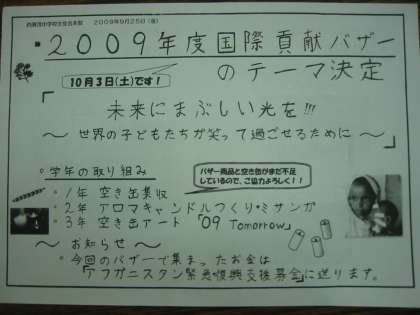 2009年9月25日(金)
2009年度国際貢献バザー
のテーマ決定
10月3日(土)です!
「未来にまぶしい光を!!!
～世界の子どもたちが笑って過ごせるために～」
○学年の取り組み
バザー商品と空き缶がまだ不足
しているので、ご協力よろしく!!
・1年 空き缶集収
・2年 アロマキャンドルつくり・ミサンガ
・3年 空き缶アート「'09 Tomorrow」
～お知らせ～
・今回のバザーで集まったお金は
「アフガニスタン緊急復興支援募金」に送ります。